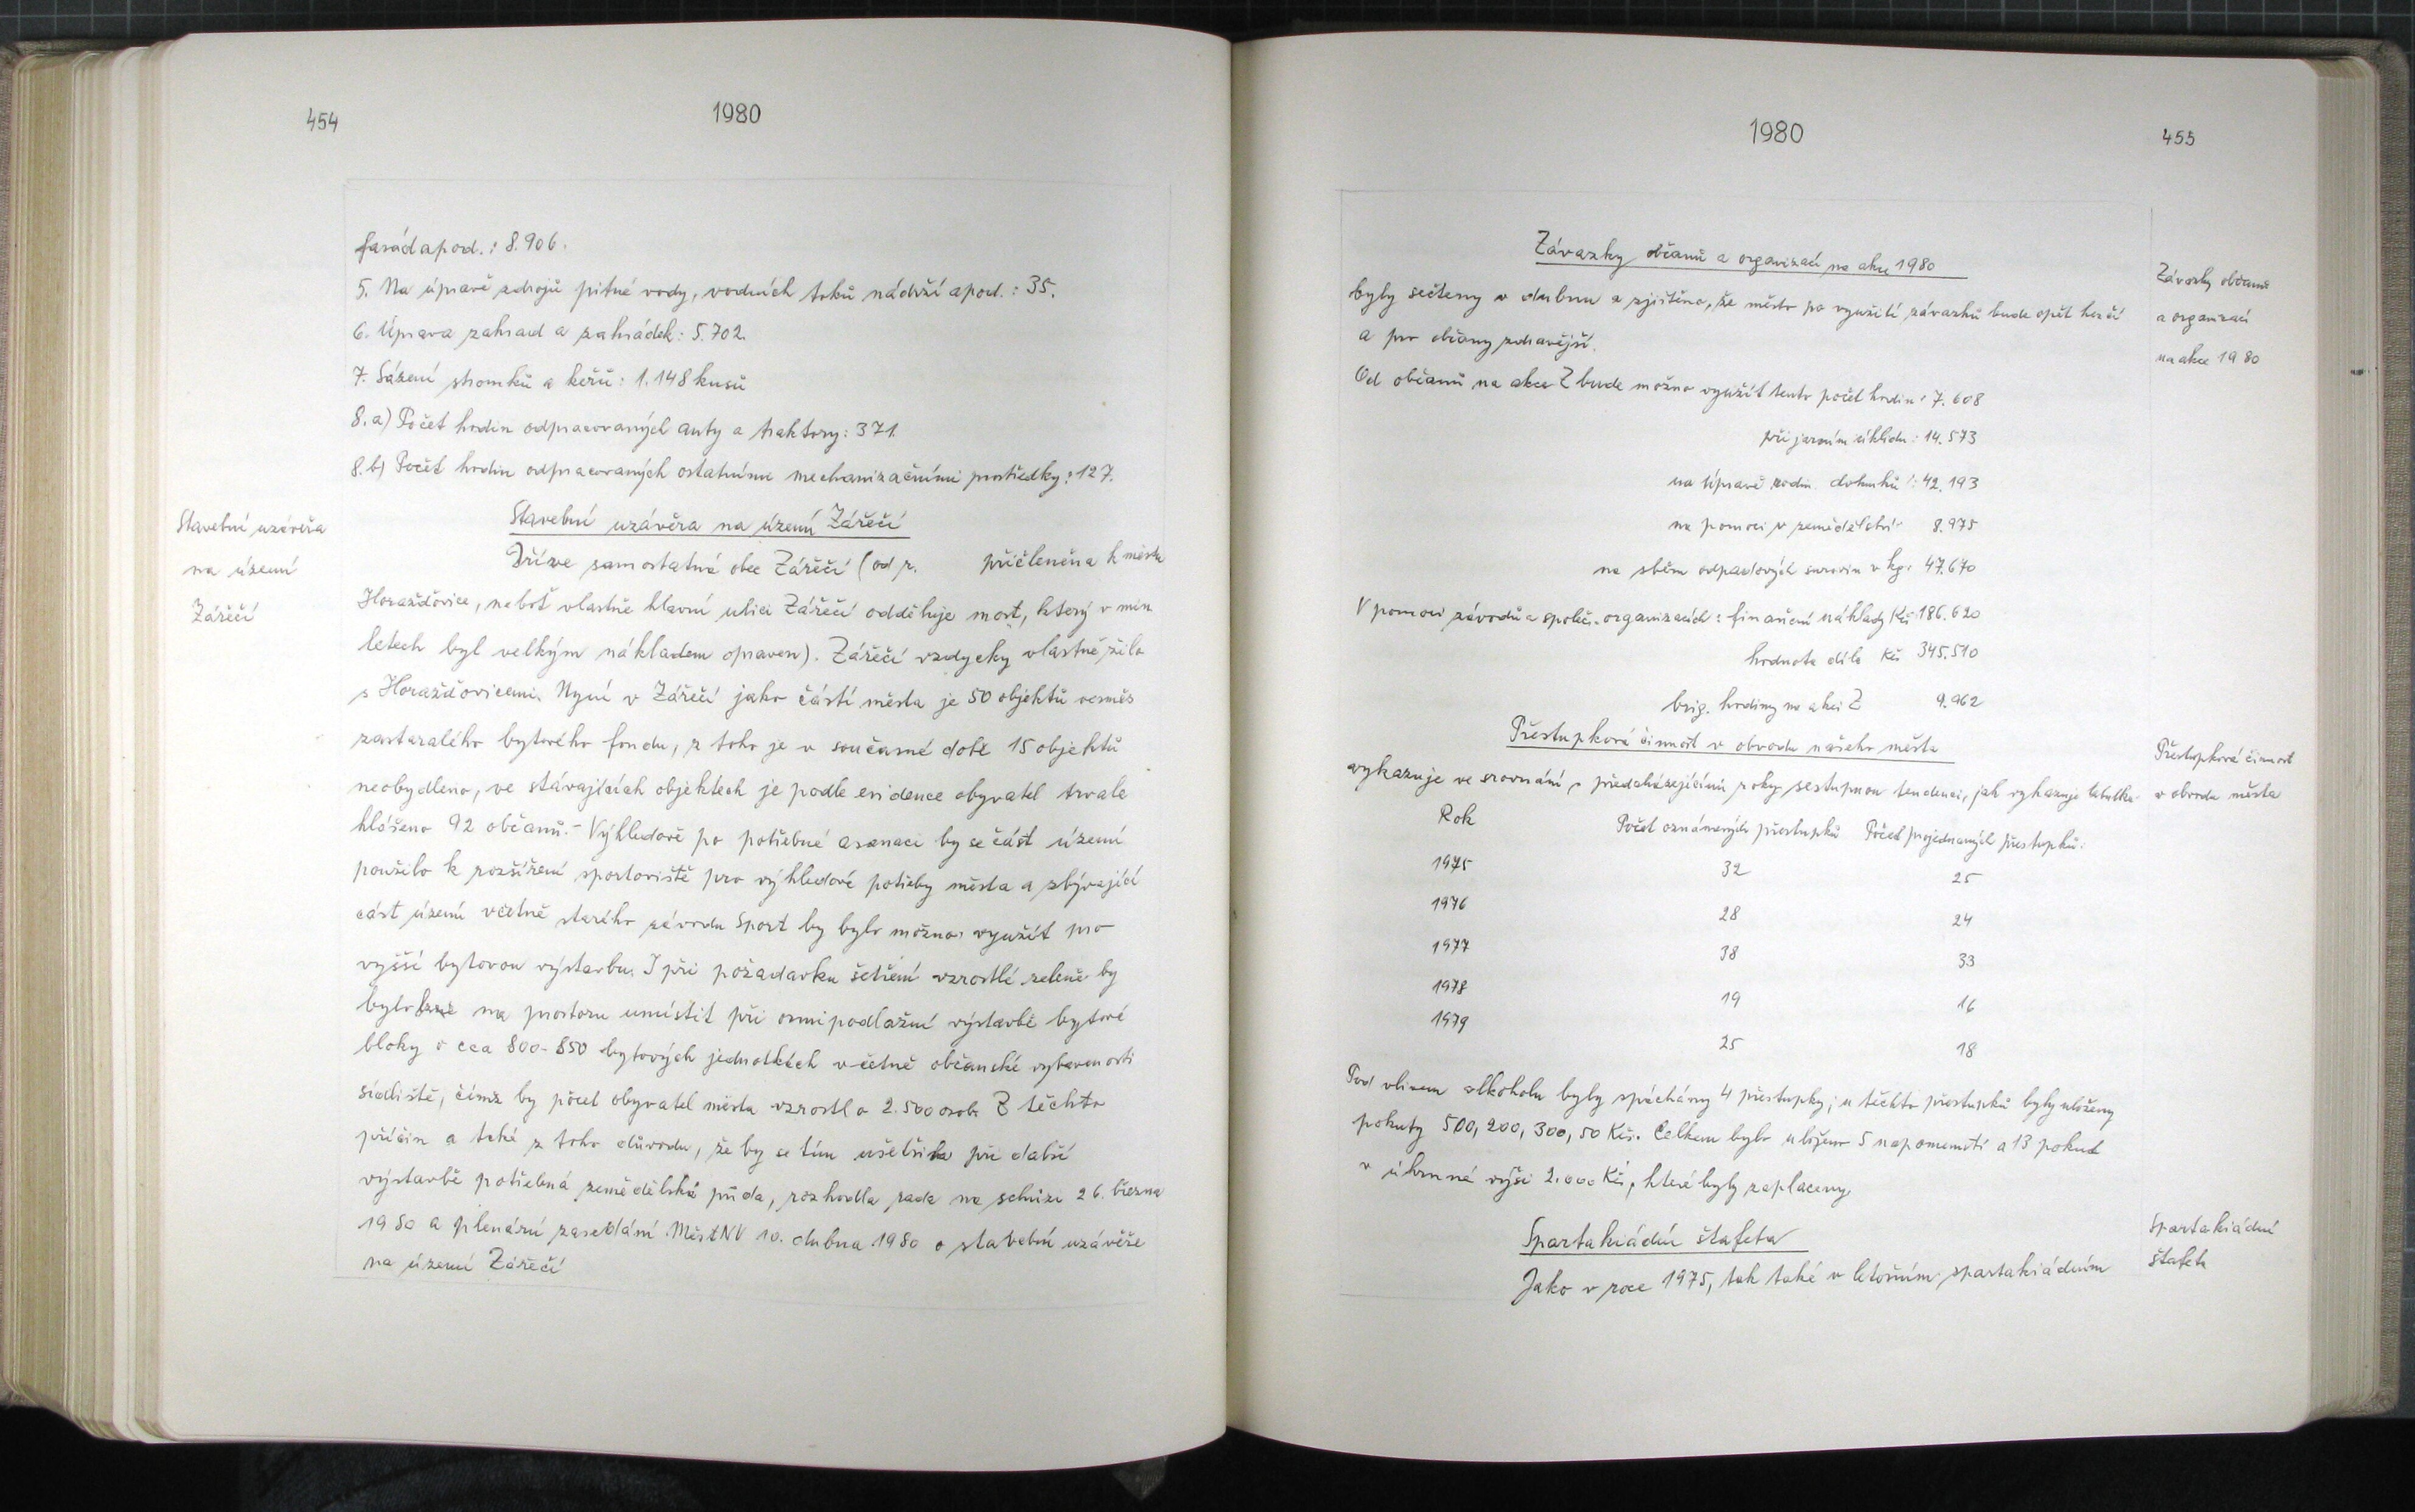 454
1980
fasád apod.: 8.906.
5. Na úpravě zdrojů pitné vody, vodních toků nádrží apod.: 35.
6. Úprava zahrad a zahrádek: 5.702.
7. Sázení stromků a keřů: 1.148 kusů
8. a) Počet hodin odpracovaných auty a traktory: 371.
8. b) Počet hodin odpracovaných ostatními mechanizačními prostředky: 127.
Stavební uzávěra
na území
Zářečí
Stavební uzávěra na území Zářečí
Dříve samostatná obec Zářečí (od r. přičleněna k městu
Horažďovice, neboť vlastně hlavní ulici Zářečí odděluje most, který v min
letech byl velkým nákladem opraven). Zářečí vzdycky vlastně žilo
s Horažďovicemi. Nyní v Zářečí jako částí města je 50 objektů vesměs
zastaralého bytového fondu, z toho je v současné době 15 objektů
neobydleno, ve stávajících objektech je podle evidence obyvatel trvale
hlášeno 92 občanů. - Výhledově po potřebné asanaci by se část území
použilo k rozšíření sportoviště pro výhledové potřeby města a zbývající
část území včetně starého závodu Sport by bylo možno využít pro
vyšší bytovou výstavbu. I při požadavku šetření vzrostlé zeleně by
bylo na prostoru umístit při osmipodlažní výstavbě bytové
bloky o cca 800-850 bytových jednotkách včetně občanské vybavenosti
sídliště, čímž by počet obyvatel města vzrostl o 2.500 osob. Z těchto
příčin a také z toho důvodu, že by se tím ušetřila při další
výstavbě potřebná zemědělská půda, rozhodla rada na schůzi 26. března
1980 a plenární zasedání MěstNV 10. dubna 1980 o stavební uzávěře
na území Zářečí
1980
455
Závazky občanů a organizací na akce 1980
Závazky občanů
a organizací
na akce 1980
byly sečteny v dubnu a zjištěno, že město po využití závazků bude opět hezčí
a pro občany zdravější.
Od občanů na akce Z bude možno využít tento počet hodin: 7.608
při jarním úklidu: 14.573
na úpravě rodin. domků: 42.193
na pomoci v zemědělství: 8.975
na sběru odpadových surovin v kg: 47.670
V pomoci závodů a společ. organizacích: finanční náklady Kčs 186.620
hodnota díla Kčs 345.510
brig. hodiny na akci Z 9.962
Přestupková činnost v obvodu našeho města
Přestupková činnost
v obvodu města
vykazuje ve srovnání s předcházejícími roky sestupnou tendenci, jak vykazuje tabulka
Rok Počet oznámených přestupků Počet projednaných přestupků.
1975 32 25
1976 28 24
1977 38 33
1978 19 16
1979 25 18
Pod vlivem alkoholu byly spáchány 4 přestupky; u těchto přestupků byly uloženy
pokuty 500, 200, 300, 50 Kčs. Celkem bylo uloženo 5 napomenutí a 13 pokut
v úhrnné výši 2.000 Kčs, které byly zaplaceny.
Spartakiádní štafeta
Spartakiádní
štafeta
Jako v roce 1975, tak také v letošním spartakiádním